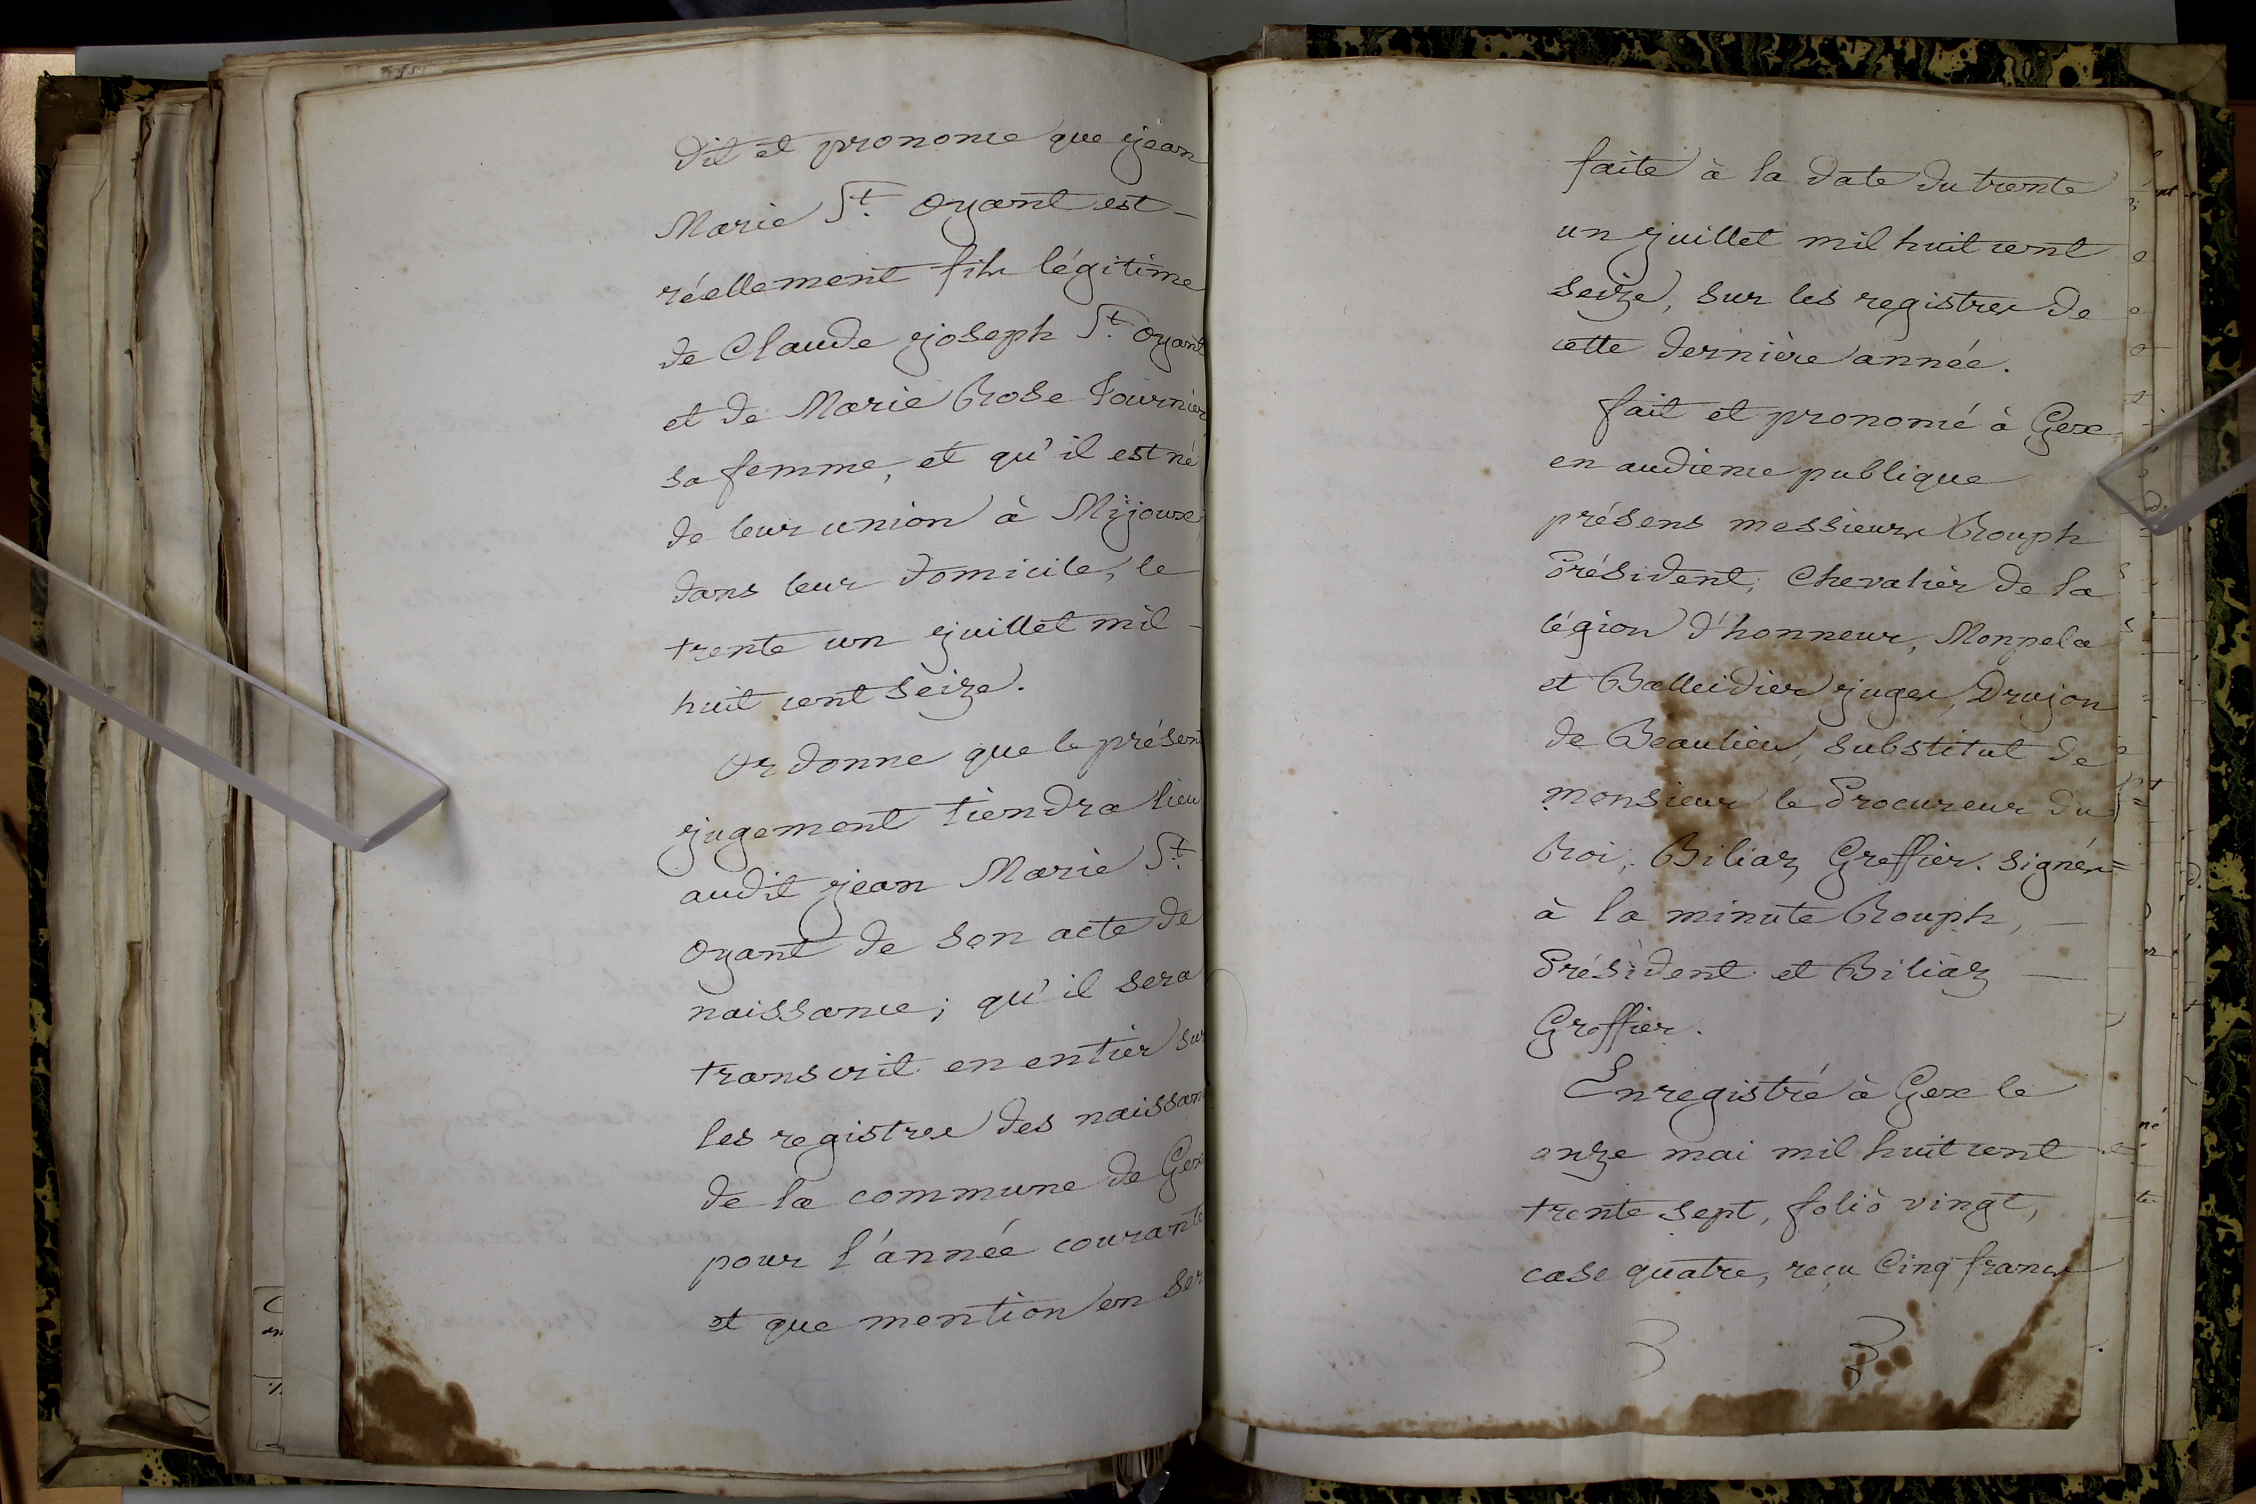 dit et prononce que jean
Marie St. Oyant est -
réellement fils légitime
de Claude joseph St. Oyant
et de Marie Rose Fournier
sa femme, et qu'il est né
de leur union à Mijoux
dans leur domicile, le
trente un juillet mil -
huit cent seize.
Ordonne que le présent
jugement tiendra lieu
audit jean Marie St.
Oyant de son acte de
naissance; qu'il sera
transcrit en entier sur
les registres des naissan
de la commune de Gex
pour l'année courante
et que mention en ser
faite à la date du trente
un juillet mil huit cent
seize, sur les registres de
cette dernière année.
fait et prononcé à Gex
en audience publique
présens messieurs Rouph
Président, Chevalier de la
légion d'honneur, Monpela
et Balleidier juges, Drujon
de Beaulieu, substitut de
monsieur le Procureur du
Roi, Biliaz Greffier. signés =
à la minute Rouph, -
Président et Biliaz -
Greffier.
Enregistré à Gex le
onze mai mil huit cent
trente sept, folio vingt,
case quatre, reçu Cinq francs